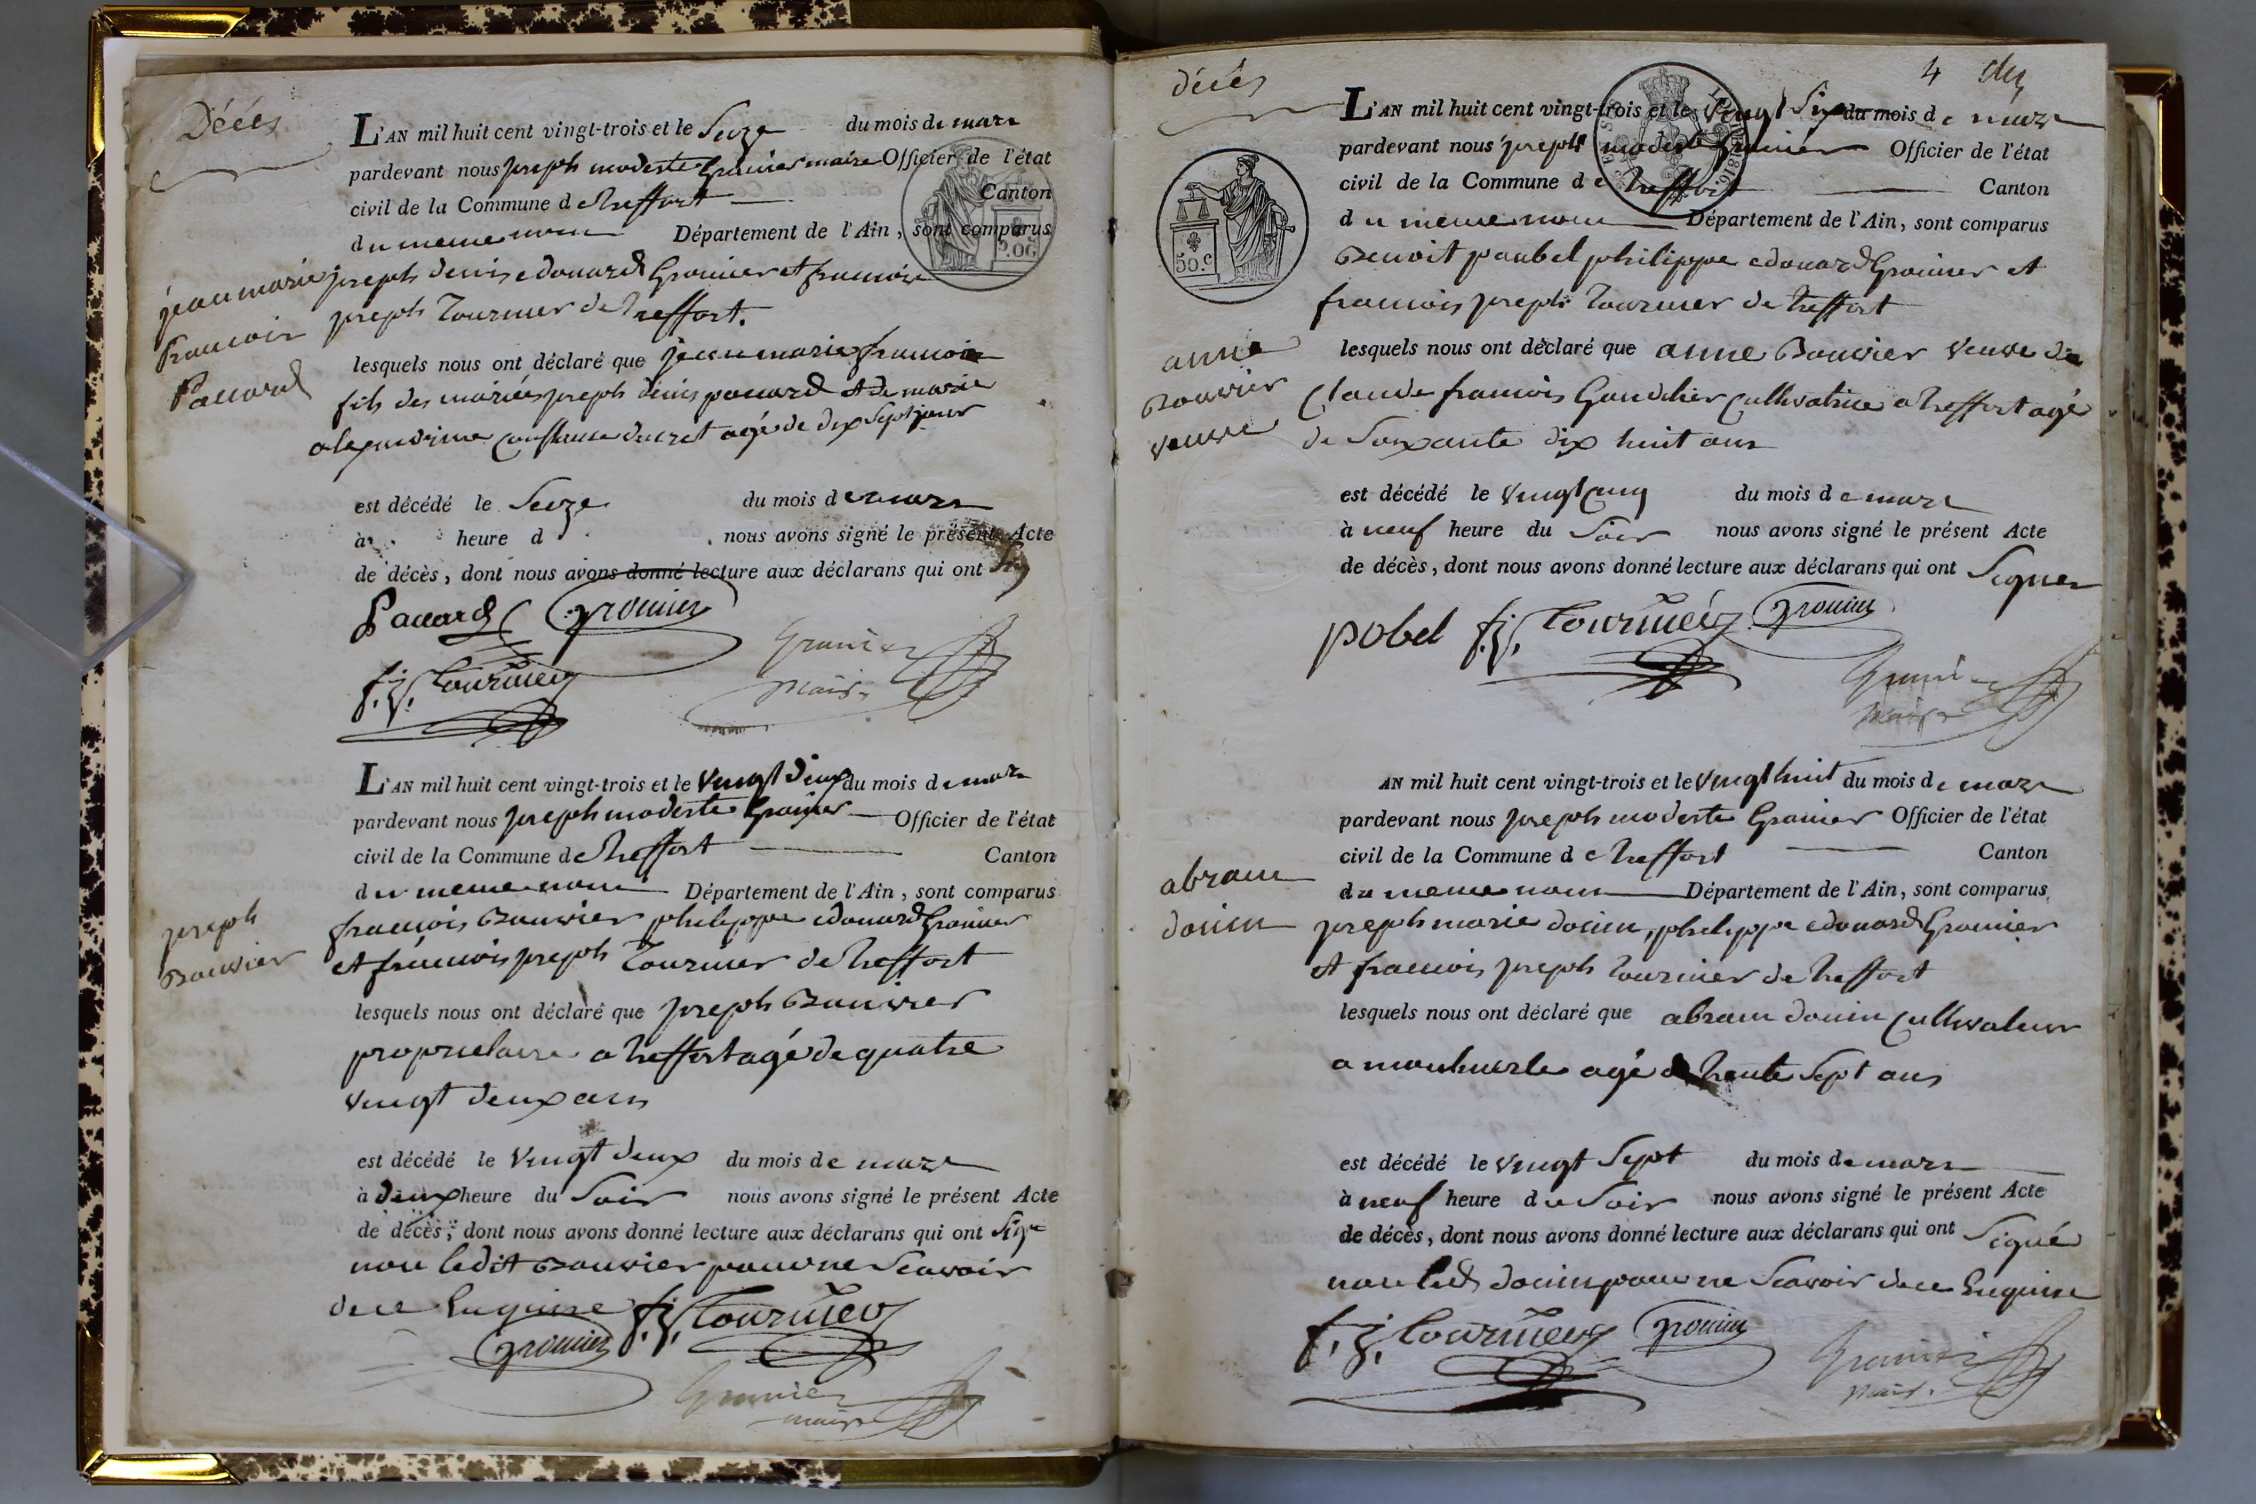 Décés
L'AN mil huit cent vingt-trois et le Seize du mois de mars
pardevant nous joseph modeste Grainier maire Officier de l'état
civil de la Commune de treffort Canton
du meme nom Département de l'Ain, sont comparus
joseph denis edouard Grainier et francois
joseph Tournier de treffort.
jean marie
francois
Paccard
lesquels nous ont déclaré que jean marie francois
fils des mariés joseph denis paccard et de marie
constance ducret agé de dix Sept jour
est décédé le Seize du mois de mars
à heure d nous avons signé le présent Acte
de décès, dont nous avons donné lecture aux déclarans qui ont
Paccard Grainier
f. j. Tournier
Grainier
maire
L'AN mil huit cent vingt-trois et le vingt deux du mois de mars
pardevant nous joseph modeste Grainier Officier de l'état
civil de la Commune de treffort Canton
du meme nom Département de l'Ain, sont comparus
joseph
Bouvier
francois Bouvier philippe edouard Grainier
et francois joseph Tournier de treffort
lesquels nous ont déclaré que joseph Bouvier
proprietaire a treffort agé de quatre
vingt deux ans
est décédé le vingt deux du mois de mars
à deux heure du Soir nous avons signé le présent Acte
de décès, dont nous avons donné lecture aux déclarans qui ont Signé
non ledit Bouvier pour ne Scavoir
de ce Enquise f. j. Tournier
Grainier
Grainier
maire
décés
4
50.c
L'AN mil huit cent vingt-trois et le vingt Six du mois de mars
pardevant nous joseph modeste Grainier Officier de l'état
civil de la Commune de treffort Canton
du meme nom Département de l'Ain, sont comparus
Benoit paubel philippe edouard Grainier et
francois joseph Tournier de treffort
anne
Bouvier
veuve
lesquels nous ont déclaré que anne Bouvier veuve de
Claude francois Gaudelier Cultivatrice a treffort agé
de Soixante dix huit ans
est décédé le vingt cinq du mois de mars
à neuf heure du Soir nous avons signé le présent Acte
de décès, dont nous avons donné lecture aux déclarans qui ont Signer
pobel f. j. Tournier Grainier
Grainier
maire
AN mil huit cent vingt-trois et le vingt huit du mois de mars
pardevant nous joseph modeste Grainier Officier de l'état
civil de la Commune de treffort Canton
du meme nom Département de l'Ain, sont comparus
abram
doucin
joseph marie doucin, philippe edouard Grainier
et francois joseph Tournier de treffort
lesquels nous ont déclaré que abram doucin Cultivateur
a agé de trente Sept ans
est décédé le vingt Sept du mois de mars
à neuf heure du Soir nous avons signé le présent Acte
de décès, dont nous avons donné lecture aux déclarans qui ont Signé
non ledt doucin pour ne Scavoir de ce Enquise
f. j. Tournier Grainier
Grainier
maire